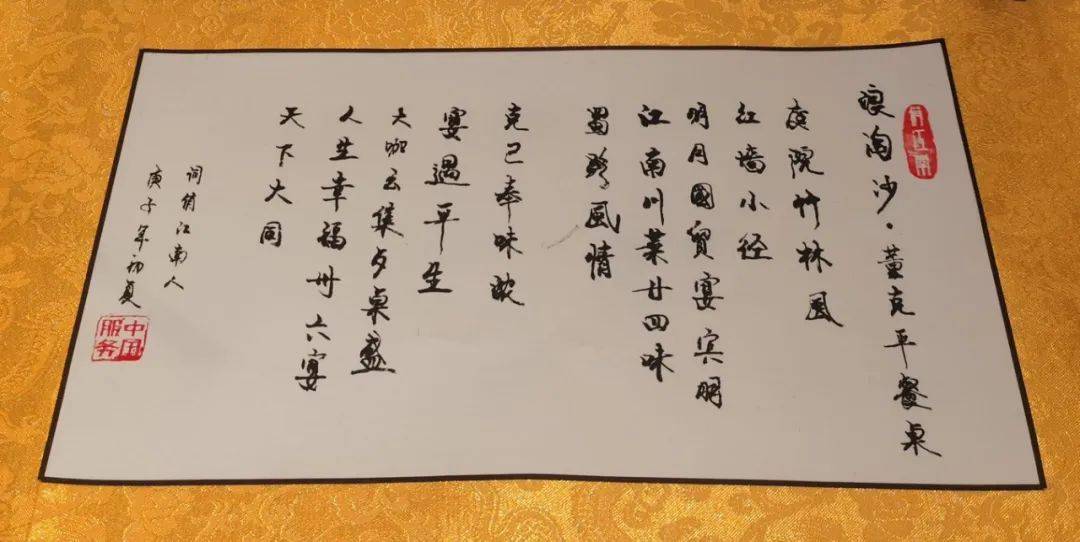 浪淘沙·董克平餐桌
庭院竹林風
红墙小径
明月國賓宴宾朋
江南川菜廿四味
蜀風情
克己奉味浓
宴遇平生
大咖云集桌盛
人生幸福卅六宴
天下大同
词俏江南人
庚子年初夏
中国服务